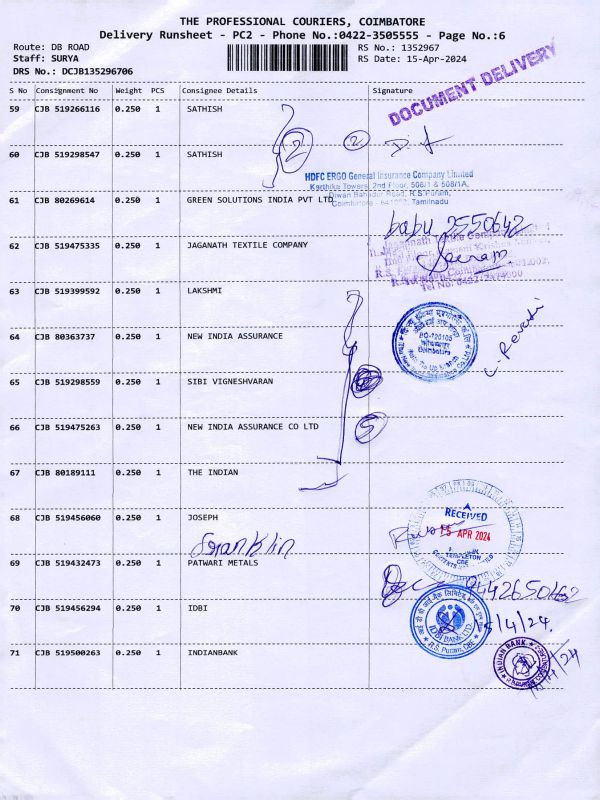 THE PROFESSIONAL COURIERS, COIMBATORE
Delivery Runsheet - PC2 - Phone No.:0422-3505555 - Page No.:6
Route: DB ROAD
RS No.: 1352967
Staff: SURYA
RS Date: 15-Apr-2024
DRS No.: DCJB135296706
S No Consignment No Weight PCS Consignee Details Signature
DOCUMENT DELIVERY
59 CJB 519266116 0.250 1 SATHISH
2 2
60 CJB 519298547 0.250 1 SATHISH
HDFC ERGO General Insurance Company Limited
Karthika Towers, 2nd Floor, 508/1 & 508/1A,
Diwan Bahadur Road, R.S Puram,
Coimbatore - 641002, Tamilnadu
61 CJB 80269614 0.250 1 GREEN SOLUTIONS INDIA PVT LTD
babu 2550642
62 CJB 519475335 0.250 1 JAGANATH TEXTILE COMPANY
63 CJB 519399592 0.250 1 LAKSHMI
64 CJB 80363737 0.250 1 NEW INDIA ASSURANCE
Coimbatore
65 CJB 519298559 0.250 1 SIBI VIGNESHVARAN
66 CJB 519475263 0.250 1 NEW INDIA ASSURANCE CO LTD
5
67 CJB 80189111 0.250 1 THE INDIAN
68 CJB 519456060 0.250 1 JOSEPH
RECEIVED
15 APR 2024
Franklin
69 CJB 519432473 0.250 1 PATWARI METALS
9442650162
70 CJB 519456294 0.250 1 IDBI
15/4/24.
IDBI BANK LTD.
R.S. Puram, CBE
71 CJB 519500263 0.250 1 INDIANBANK
INDIAN BANK